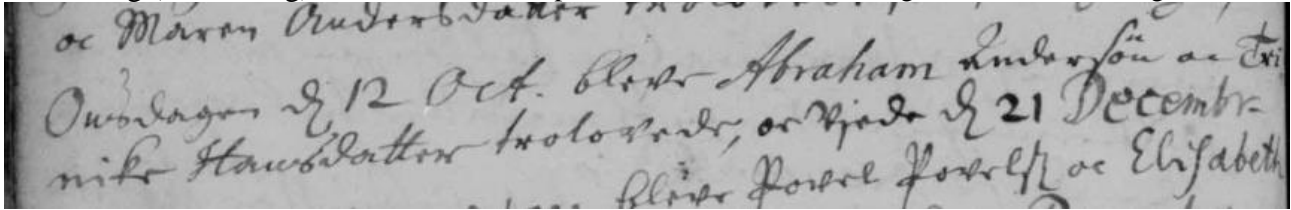 oc Maren Andersdatter
Onsdagen d. 12 Oct. bleve Abraham Andersön oc Tri
nike Hansdatter trolovede, oc Viede d. 21 Decembr.
bleve Povel Povels. oc Elisabeth